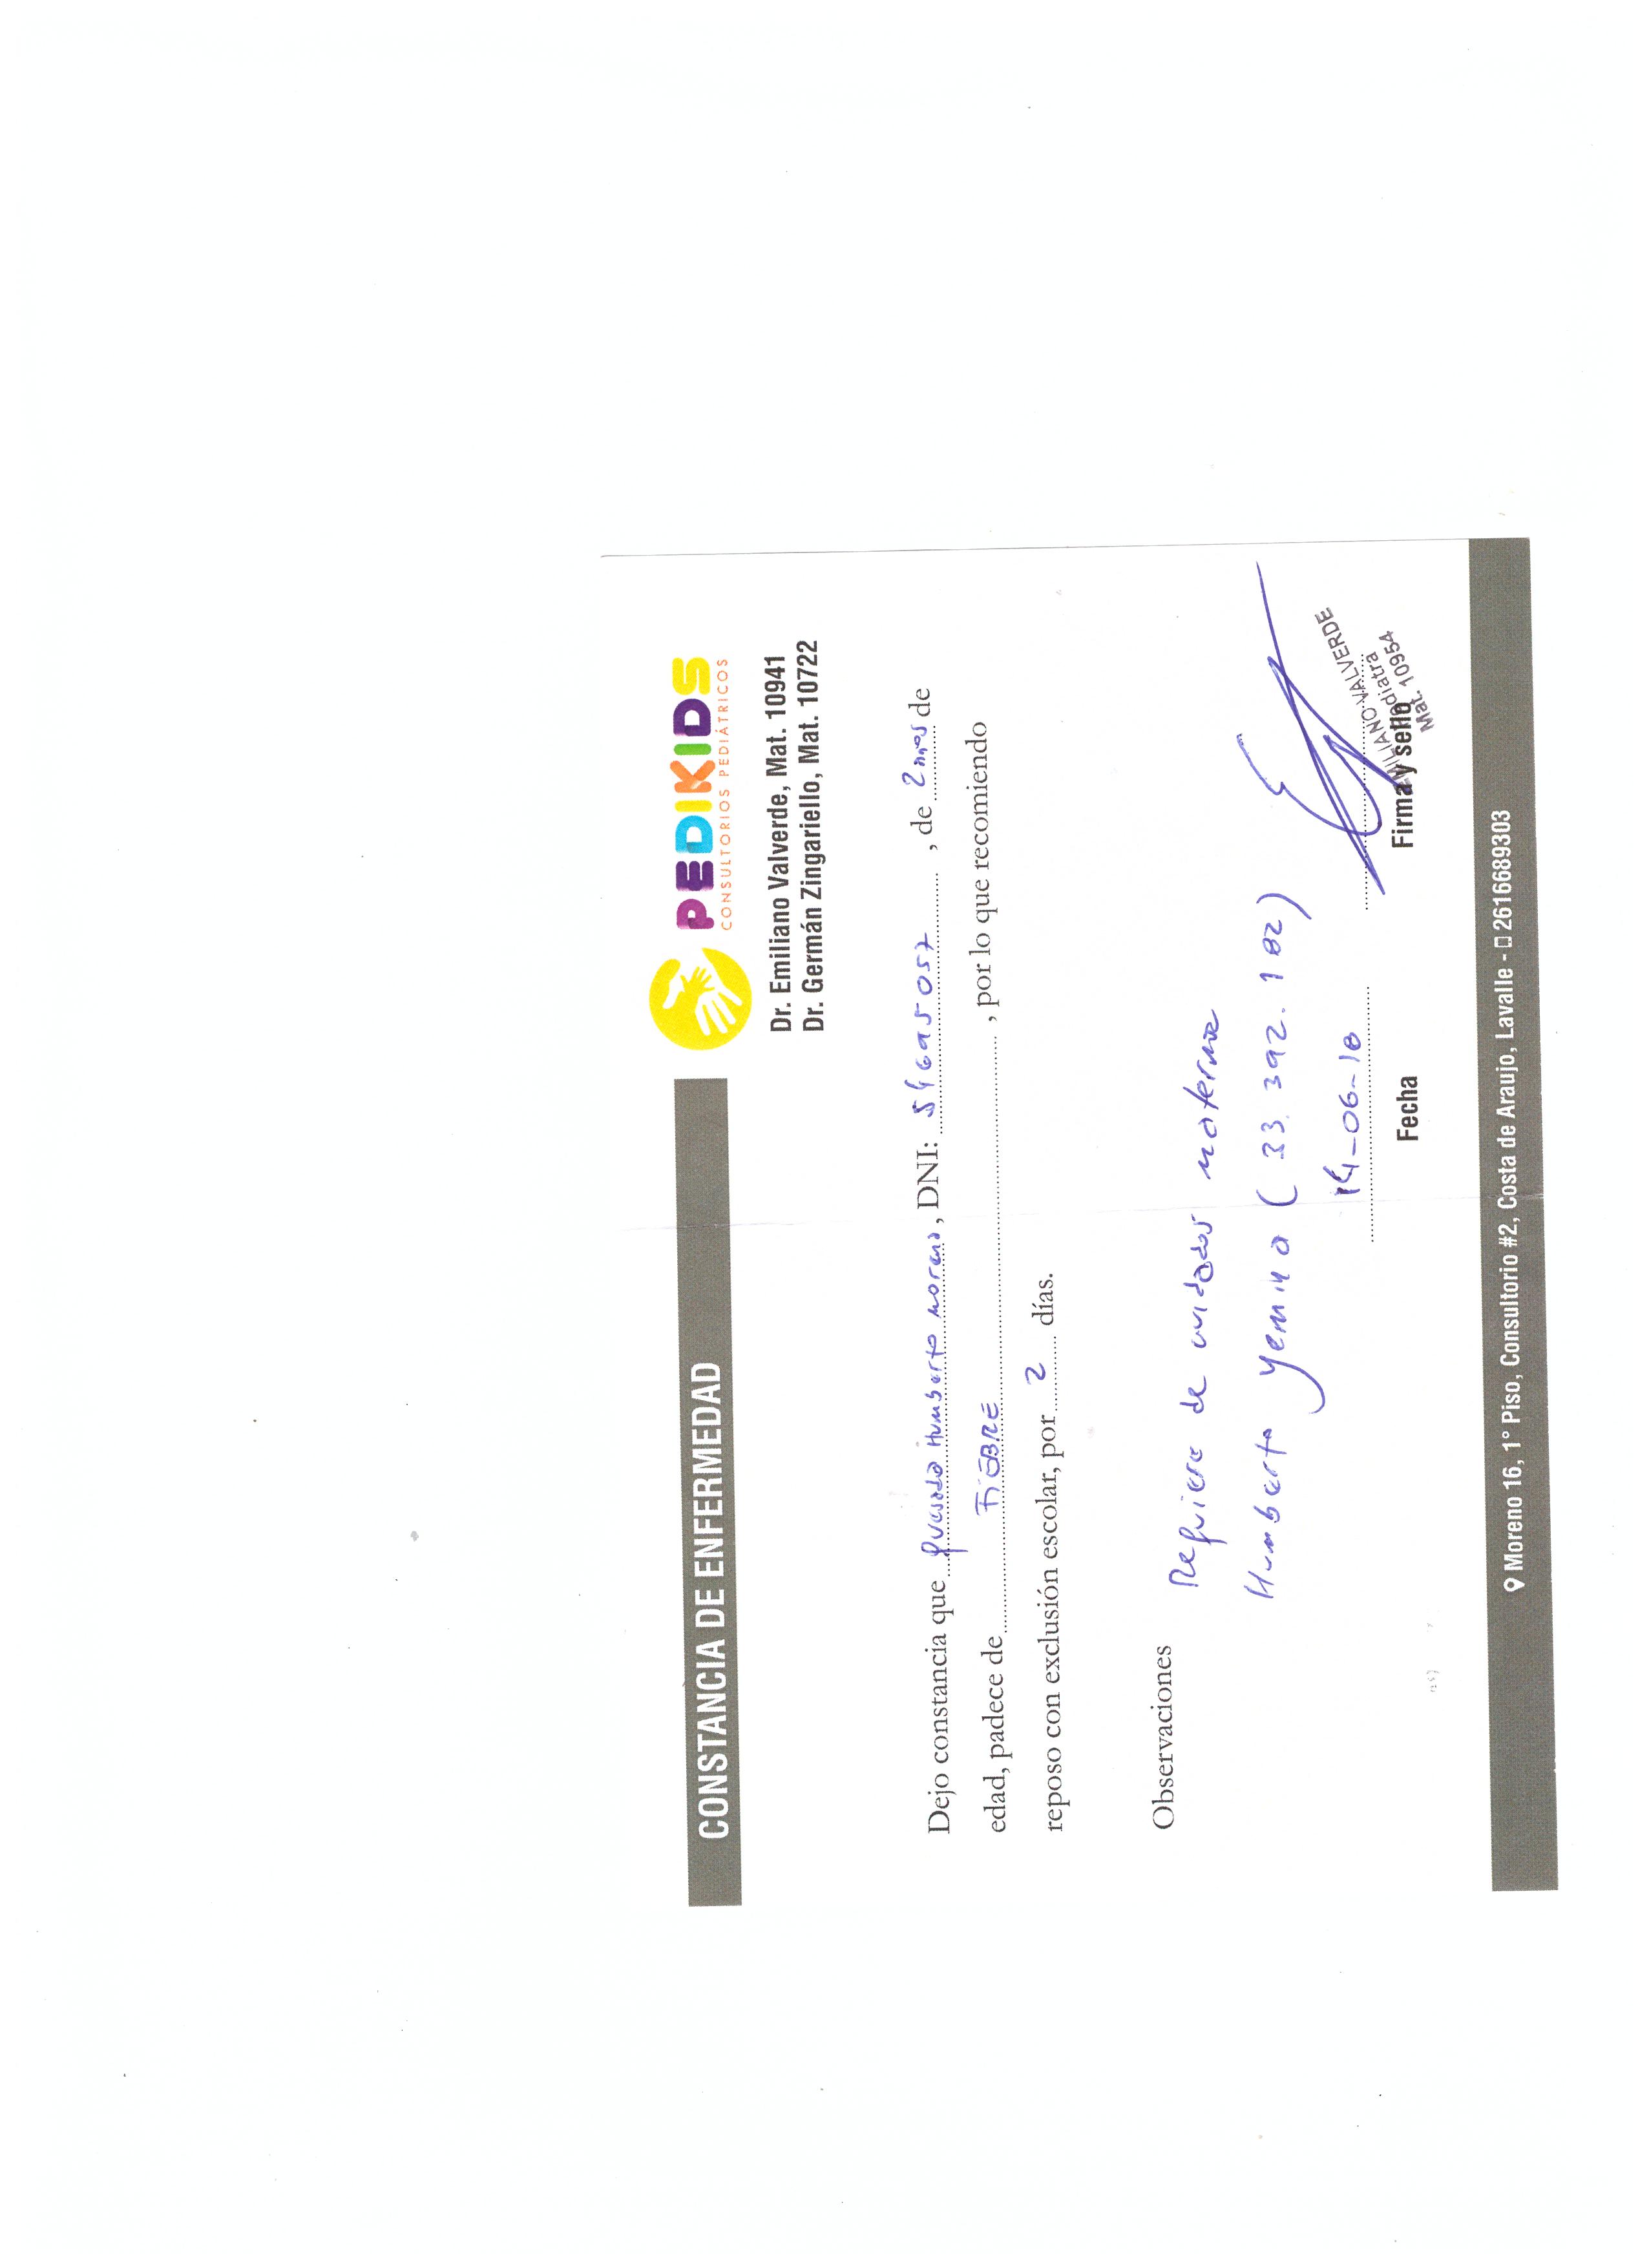 CONSTANCIA DE ENFERMEDAD
PEDIKIDS
CONSULTORIOS PEDIÁTRICOS
Dr. Emiliano Valverde, Mat. 10941
Dr. Germán Zingariello, Mat. 10722
Dejo constancia que Quesada Humberto moreno, DNI: 54695057, de 2 años de
edad, padece de FIEBRE, por lo que recomiendo
reposo con exclusión escolar, por 2 días.
Observaciones
Requiere de cuidados
Humberto Yemina (33.392.182)
14-06-18
EMILIANO VALVERDE
Pediatra
Mat. 10954
Fecha
Firma y sello
Moreno 16, 1° Piso, Consultorio #2, Costa de Araujo, Lavalle - 2616689303